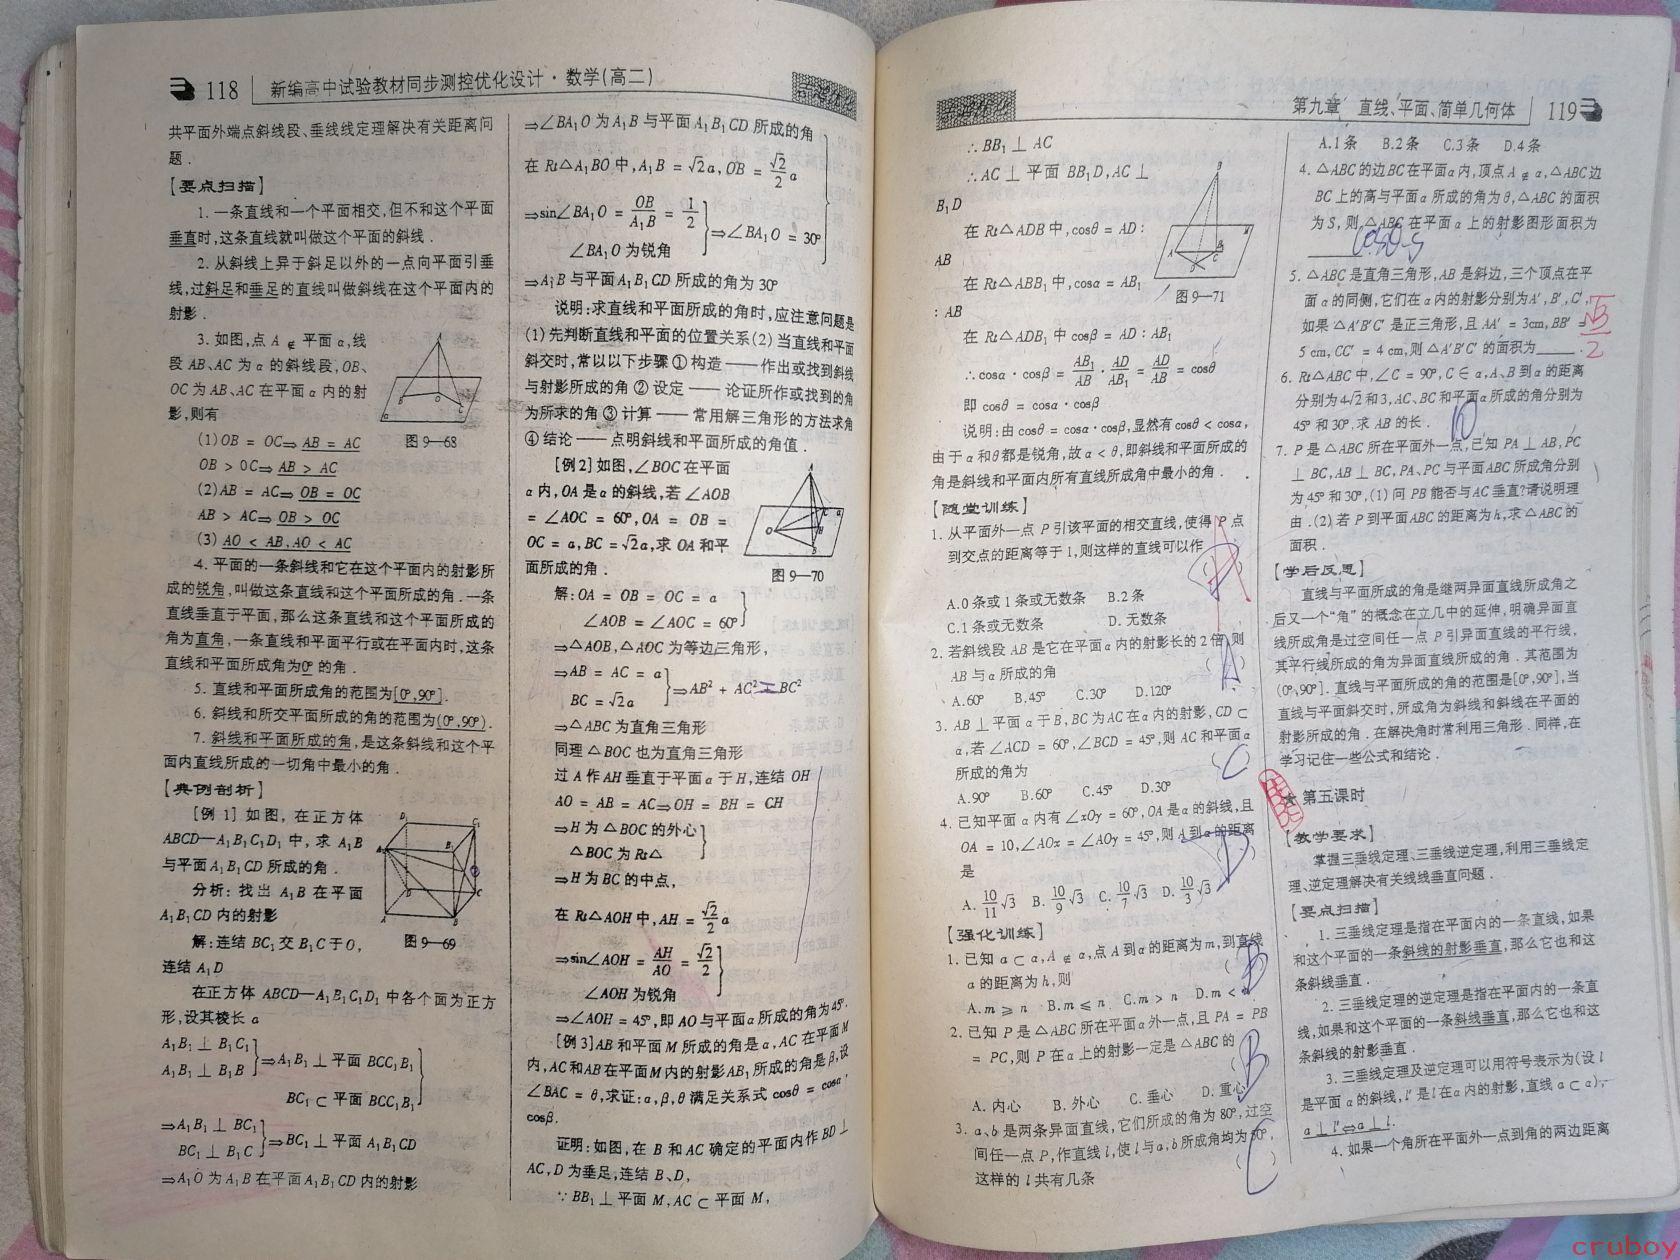 118 新编高中试验教材同步测控优化设计·数学(高二)
共平面外端点斜线段、垂线线定理解决有关距离问
题.
【要点扫描】
1. 一条直线和一个平面相交,但不和这个平面
垂直时,这条直线就叫做这个平面的斜线.
2. 从斜线上异于斜足以外的一点向平面引垂
线,过斜足和垂足的直线叫做斜线在这个平面内的
射影.
3. 如图,点 A ∉ 平面 α,线
段 AB、AC 为 α 的斜线段,OB、
OC 为 AB、AC 在平面 α 内的射
影,则有
图 9—68
(1)OB = OC⇒ AB = AC
OB > 0C⇒ AB > AC
(2)AB = AC⇒ OB = OC
AB > AC⇒ OB > OC
(3) AO < AB,AO < AC
4. 平面的一条斜线和它在这个平面内的射影所
成的锐角,叫做这条直线和这个平面所成的角.一条
直线垂直于平面,那么这条直线和这个平面所成的
角为直角,一条直线和平面平行或在平面内时,这条
直线和平面所成角为0° 的角.
5. 直线和平面所成角的范围为[0°,90°].
6. 斜线和所交平面所成的角的范围为(0°,90°).
7. 斜线和平面所成的角,是这条斜线和这个平
面内直线所成的一切角中最小的角.
【典例剖析】
[例 1] 如图, 在正方体
ABCD—A₁B₁C₁D₁ 中, 求 A₁B
与平面 A₁B₁CD 所成的角.
分析: 找出 A₁B 在平面
A₁B₁CD 内的射影
解:连结 BC₁ 交 B₁C 于 O,
图 9—69
连结 A₁D
在正方体 ABCD—A₁B₁C₁D₁ 中各个面为正方
形,设其棱长 a
A₁B₁ ⊥ B₁C₁
A₁B₁ ⊥ B₁B
⇒A₁B₁ ⊥ 平面 BCC₁B₁
BC₁ ⊂ 平面 BCC₁B₁
⇒A₁B₁ ⊥ BC₁
BC₁ ⊥ B₁C
⇒BC₁ ⊥ 平面 A₁B₁CD
⇒A₁O 为 A₁B 在平面 A₁B₁CD 内的射影
⇒∠BA₁O 为 A₁B 与平面 A₁B₁CD 所成的角
在 Rt△A₁BO 中, A₁B = √2a, OB = √2/2 a
⇒sin∠BA₁O = OB/A₁B = 1/2
∠BA₁O 为锐角
⇒∠BA₁O = 30°
⇒A₁B 与平面 A₁B₁CD 所成的角为 30°
说明:求直线和平面所成的角时,应注意问题是
(1) 先判断直线和平面的位置关系(2) 当直线和平面
斜交时,常以以下步骤 ① 构造 —— 作出或找到斜线
与射影所成的角 ② 设定 —— 论证所作或找到的角
为所求的角 ③ 计算 —— 常用解三角形的方法求角
④ 结论 —— 点明斜线和平面所成的角值.
[例 2] 如图,∠BOC 在平面
α 内,OA 是 α 的斜线,若 ∠AOB
= ∠AOC = 60°,OA = OB =
OC = a,BC = √2a,求 OA 和平
面所成的角.
图 9—70
解:OA = OB = OC = a
∠AOB = ∠AOC = 60°
⇒△AOB,△AOC 为等边三角形,
⇒AB = AC = a
BC = √2a
⇒AB² + AC² = BC²
⇒△ABC 为直角三角形
同理 △BOC 也为直角三角形
过 A 作 AH 垂直于平面 α 于 H,连结 OH
AO = AB = AC⇒OH = BH = CH
⇒H 为 △BOC 的外心
△BOC 为 Rt△
⇒H 为 BC 的中点,
在 Rt△AOH 中, AH = √2/2 a
⇒sin∠AOH = AH/AO = √2/2
∠AOH 为锐角
⇒∠AOH = 45°,即 AO 与平面 α 所成的角为 45°.
[例 3]AB 和平面 M 所成的角是 α,AC 在平面 M
内,AC 和 AB 在平面 M 内的射影 AB₁ 所成的角是 β,设
∠BAC = θ,求证: α,β,θ 满足关系式 cosθ = cosα·
cosβ.
证明:如图,在 B 和 AC 确定的平面内作 BD ⊥
AC,D 为垂足,连结 B、D,
∵ BB₁ ⊥ 平面 M,AC ⊂ 平面 M,
第九章 直线、平面、简单几何体 119
∴ BB₁ ⊥ AC
∴ AC ⊥ 平面 BB₁D,AC ⊥
B₁D
在 Rt△ADB 中,cosθ = AD :
AB
在 Rt△ABB₁ 中,cosα = AB₁
图 9—71
: AB
在 Rt△ADB₁ 中 cosβ = AD : AB₁
∴ cosα · cosβ = AB₁/AB · AD/AB₁ = AD/AB = cosθ
即 cosθ = cosα · cosβ
说明:由 cosθ = cosα·cosβ,显然有 cosθ < cosα,
由于 α 和 θ 都是锐角,故 α < θ,即斜线和平面所成的
角是斜线和平面内所有直线所成角中最小的角.
【随堂训练】
1. 从平面外一点 P 引该平面的相交直线,使得 P 点
到交点的距离等于 1,则这样的直线可以作
A
A.0 条或 1 条或无数条 B.2 条
C.1 条或无数条 D. 无数条
2. 若斜线段 AB 是它在平面 α 内的射影长的 2 倍,则
AB 与 α 所成的角
(A)
A.60° B.45° C.30° D.120°
3. AB ⊥ 平面 α 于 B,BC 为 AC 在 α 内的射影,CD ⊂
α,若 ∠ACD = 60°,∠BCD = 45°,则 AC 和平面 α
所成的角为
(C)
A.90° B.60° C.45° D.30°
4. 已知平面 α 内有 ∠xOy = 60°,OA 是 α 的斜线,且
OA = 10,∠AOx = ∠AOy = 45°,则 A 到 α 的距离
是
D
A. 10/11 √3 B. 10/9 √3 C. 10/7 √3 D. 10/3 √3
【强化训练】
1. 已知 a ⊂ α,A ∉ α,点 A 到 α 的距离为 m,到直线
a 的距离为 h,则
B
A.m ⩾ n B.m ⩽ n C.m > n D.m < n
2. 已知 P 是 △ABC 所在平面 α 外一点,且 PA = PB
= PC,则 P 在 α 上的射影一定是 △ABC 的
(B)
A. 内心 B. 外心 C. 垂心 D. 重心
3. a、b 是两条异面直线,它们所成的角为 80°,过空
间任一点 P,作直线 l,使 l 与 a、b 所成角均为 50°,
这样的 l 共有几条
(C)
A.1 条 B.2 条 C.3 条 D.4 条
4. △ABC 的边 BC 在平面 α 内,顶点 A ∉ α,△ABC 边
BC 上的高与平面 α 所成的角为 θ,△ABC 的面积
为 S, 则 △ABC 在平面 α 上的射影图形面积为
cosθ·S
5. △ABC 是直角三角形,AB 是斜边,三个顶点在平
面 α 的同侧,它们在 α 内的射影分别为 A′,B′,C′,
如果 △A′B′C′ 是正三角形,且 AA′ = 3cm,BB′ =
5 cm,CC′ = 4 cm,则 △A′B′C′ 的面积为____.
6. Rt△ABC 中,∠C = 90°,C ∈ α,A、B 到 α 的距离
分别为 4√2 和 3,AC、BC 和平面 α 所成的角分别为
45° 和 30°,求 AB 的长.
10
7. P 是 △ABC 所在平面外一点,已知 PA ⊥ AB,PC
⊥ BC,AB ⊥ BC,PA、PC 与平面 ABC 所成角分别
为 45° 和 30°,(1) 问 PB 能否与 AC 垂直?请说明理
由.(2) 若 P 到平面 ABC 的距离为 h,求 △ABC 的
面积.
【学后反思】
直线与平面所成的角是继两异面直线所成角之
后又一个“角”的概念在立几中的延伸,明确异面直
线所成角是过空间任一点 P 引异面直线的平行线,
其平行线所成的角为异面直线所成的角.其范围为
(0°,90°].直线与平面所成的角的范围是[0°,90°],当
直线与平面斜交时,所成角为斜线和斜线在平面的
射影所成的角.在解决角时常利用三角形.同样,在
学习记住一些公式和结论.
★ 第五课时
【教学要求】
掌握三垂线定理、三垂线逆定理,利用三垂线定
理、逆定理解决有关线线垂直问题.
【要点扫描】
1. 三垂线定理是指在平面内的一条直线,如果
和这个平面的一条斜线的射影垂直,那么它也和这
条斜线垂直.
2. 三垂线定理的逆定理是指在平面内的一条直
线,如果和这个平面的一条斜线垂直,那么它也和这
条斜线的射影垂直.
3. 三垂线定理及逆定理可以用符号表示为(设 l
是平面 α 的斜线,l′ 是 l 在 α 内的射影,直线 a ⊂ α),
a ⊥ l′⇔a ⊥ l.
4. 如果一个角所在平面外一点到角的两边距离
cruboy